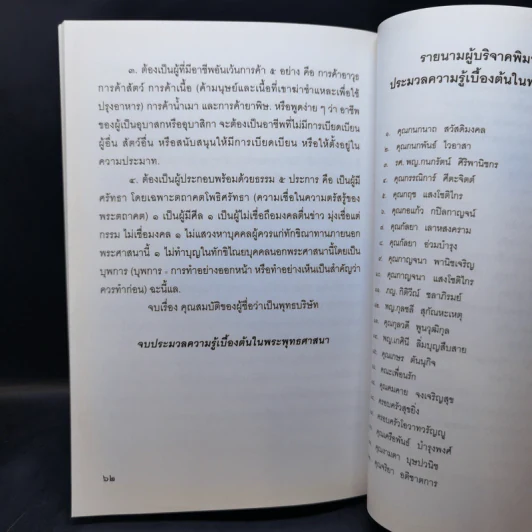 ๓. ต้องเป็นผู้ที่มีอาชีพอันเว้นการค้า ๕ อย่าง คือ การค้าอาวุธ
การค้าสัตว์ การค้าเนื้อ (ค้ามนุษย์และเนื้อที่เขาฆ่าชำแหละเพื่อใช้
ปรุงอาหาร) การค้าน้ำเมา และการค้ายาพิษ. หรือพูดง่าย ๆ ว่า อาชีพ
ของผู้เป็นอุบาสกหรืออุบาสิกา จะต้องเป็นอาชีพที่ไม่มีการเบียดเบียน
ผู้อื่น สัตว์อื่น หรือสนับสนุนให้มีการเบียดเบียน หรือให้ตั้งอยู่ใน
ความประมาท.
๔. ต้องเป็นผู้ประกอบพร้อมด้วยธรรม ๕ ประการ คือ เป็นผู้มี
ศรัทธา โดยเฉพาะตถาคตโพธิศรัทธา (ความเชื่อในความตรัสรู้ของ
พระตถาคต) ๑ เป็นผู้มีศีล ๑ เป็นผู้ไม่เชื่อถือมงคลตื่นข่าว มุ่งเชื่อแต่
กรรม ไม่เชื่อมงคล ๑ ไม่แสวงหาบุคคลผู้ควรแก่ทักขิณาทานภายนอก
พระศาสนานี้ ๑ ไม่ทำบุญในทักขิไณยบุคคลนอกพระศาสนานี้โดยเป็น
บุพการ (บุพการ - การทำอย่างออกหน้า หรือทำอย่างเห็นเป็นสำคัญว่า
ควรทำก่อน) ฉะนี้แล.
จบเรื่อง คุณสมบัติของผู้ชื่อว่าเป็นพุทธบริษัท
จบประมวลความรู้เบื้องต้นในพระพุทธศาสนา
๖๒
รายนามผู้บริจาคพิม
ประมวลความรู้เบื้องต้นในพ
คุณกนกนาถ สวัสดิมงคล
คุณกนกพันธ์ ไวอาสา
รศ. พญ.กนกรัตน์ ศิริพานิชกร
คุณกรรณิการ์ ศีตะจิตต์
คุณกฤช แสงโชติไกร
คุณกอแก้ว กปิลกาญจน์
คุณกัลยา เลาหสงคราม
คุณกัลยา อ่วมบำรุง
คุณกาญจนา พานิชเจริญ
คุณกาญจนา แสงโชติไกร
ภญ. กิติวีณ์ ชลาภิรมย์
พญ.กุลชลี สุกัณหะเหตุ
คุณกุลวดี พูนวุฒิกุล
พญ.เกศินี ลิ่มบุญสืบสาย
คุณเกษร ตันนุกิจ
คณะเพื่อนรัก
คุณคมคาย จงเจริญสุข
ครอบครัวสุขยิ่ง
ครอบครัวโอวาทวรัญญู
คุณเครือพันธ์ บำรุงพงศ์
บุษปวนิช
อดิชาตการ